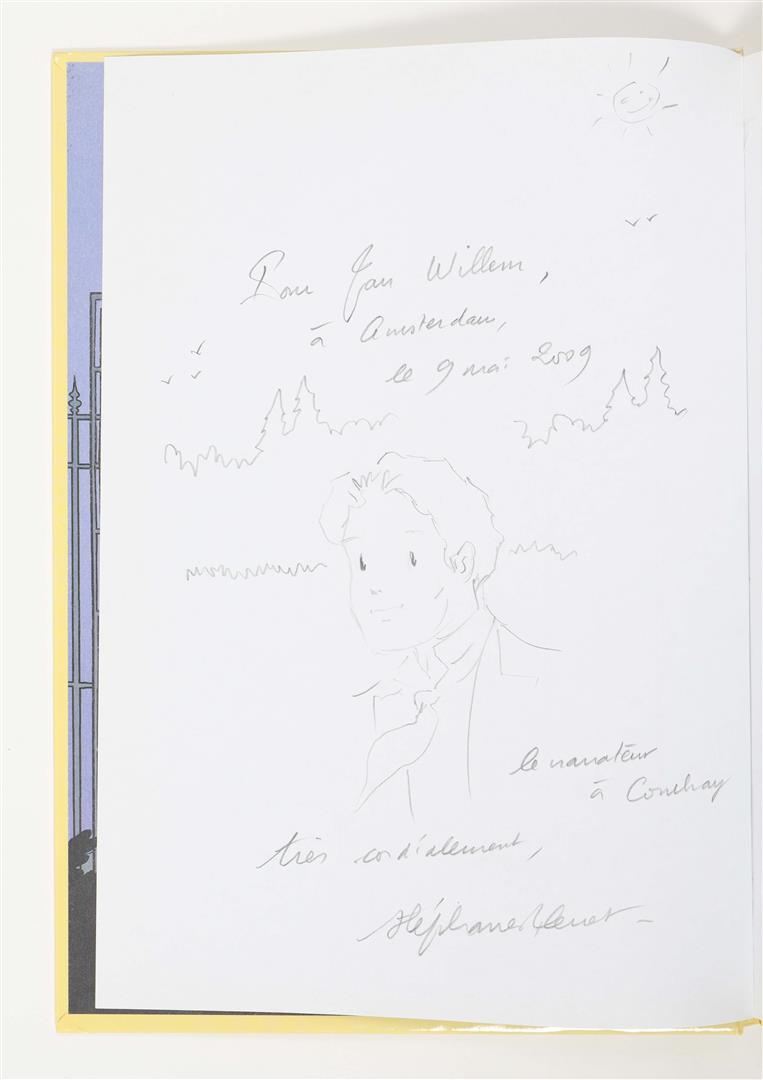 Pour Jan Willem,
à Amsterdam,
le 9 mai 2009
le narrateur
à Combray
très cordialement,
Stéphane Heuet